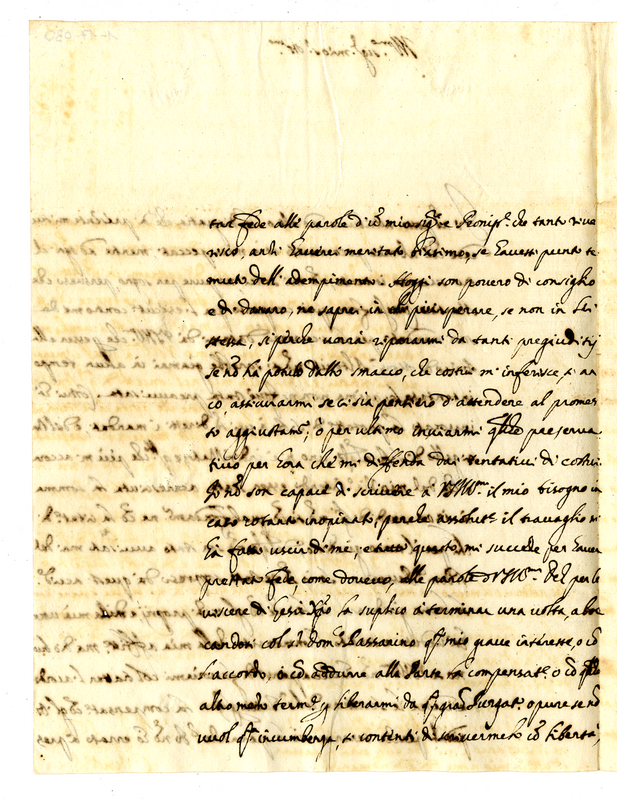 tar fede alle parole d'un mio sig.re e Pronip.e che tanto rive
risco, anzi haverei meritato biasimo, se havessi punto te
muto dell' adempimento. Hoggi son povero di consiglio
e di danaro, ne saprei in che più sperare, se non in Lei
stessa, si perche vorrà riporarmi da tanti pregiuditij
se nō ha potuto dallo smacco, che costui m'inferisce, si an
co assicurarmi se ci sia pensiero d'attendere al promes
so aggiustam.to, ò per ultimo inviarmi qualche preserva
tivo per hora che mi diffenda dai tentativi di costui.
Io nō son capace di scrivere à VSIll.ma il mio bisogno in
caso tanto inopinato, perche il travaglio mi
hà fatto uscir di me, e tutto questo mi succede per haver
prestato fede, come dovevo, alle parole di VSIll.ma Del per le
viscere di Giesù Xpo la suplico à terminar una volta, abboc
candosi col s.r Dom.co Passarino q.sto mio grave interesse, o cō
l'accordo, o cō addurre alla Parte la compensat.e o cō qualche
altro mezo term.e y liberarmi da q.sto gran Purgat.o o pure se nō
vuol q.sta incumbenza, si contenti di scrivermelo cō libertà,